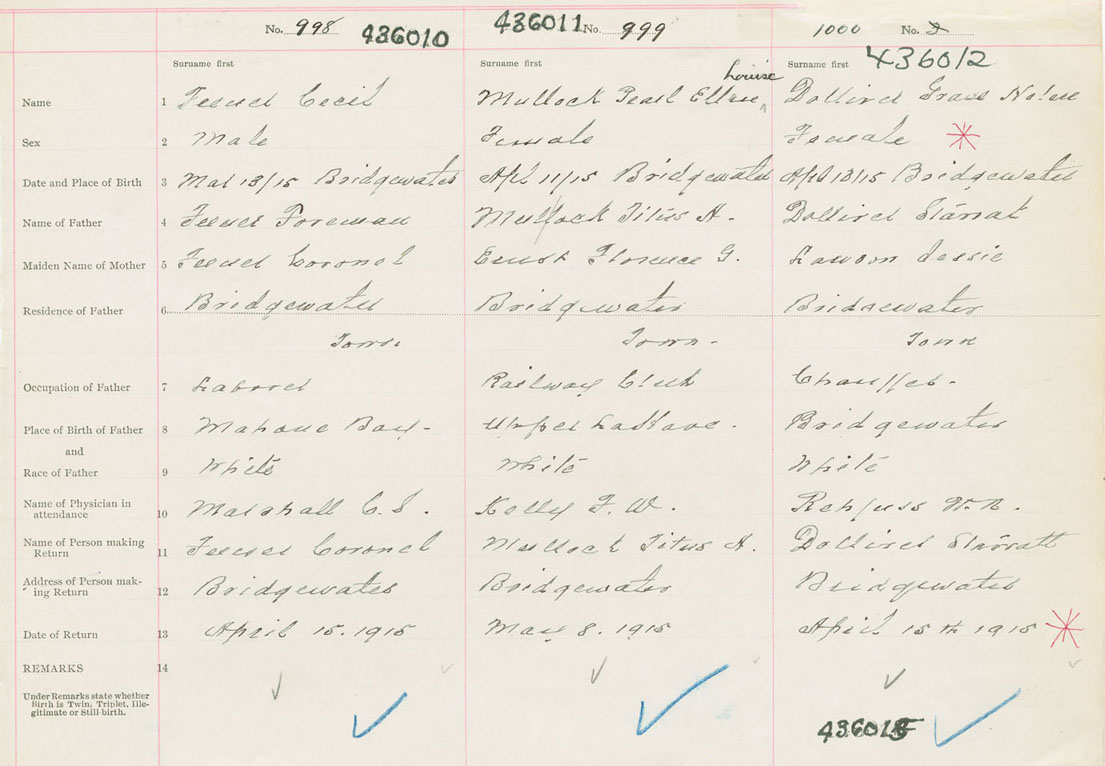 No. 998 436010 436011 No. 999 1000 No. 436012
Surname first Surname first Louise Surname first
Name 1 Feener Cecil Mullock Pearl Ellen Dolliver Grace
Sex 2 Male Female Female
Date and Place of Birth 3 Mar 13/15 Bridgewater Apl 11/15 Bridgewater Apl 13/15 Bridgewater
Name of Father 4 Feener Foreman Mullock Titus H. Dolliver Starrat
Maiden Name of Mother 5 Feener Coronel Ernst Florence G. Jessie
Residence of Father 6 Bridgewater Bridgewater Bridgewater
Town. Town. Town
Occupation of Father 7 Laborer Railway Clerk Chauffer.
Place of Birth of Father 8 Mahone Bay. Upper LaHave. Bridgewater
and
Race of Father 9 White White White
Name of Physician in
attendance 10 Marshall C. S. Kelly F. W. Rehfuss W. N.
Name of Person making
Return 11 Feener Coronel Mullock Titus H. Dolliver Starratt
Address of Person mak-
ing Return 12 Bridgewater Bridgewater Bridgewater
Date of Return 13 April 15. 1915 May 8. 1915 April 15th 1915
REMARKS 14
Under Remarks state whether
Birth is Twin, Triplet, Ille-
gitimate or Still-birth.